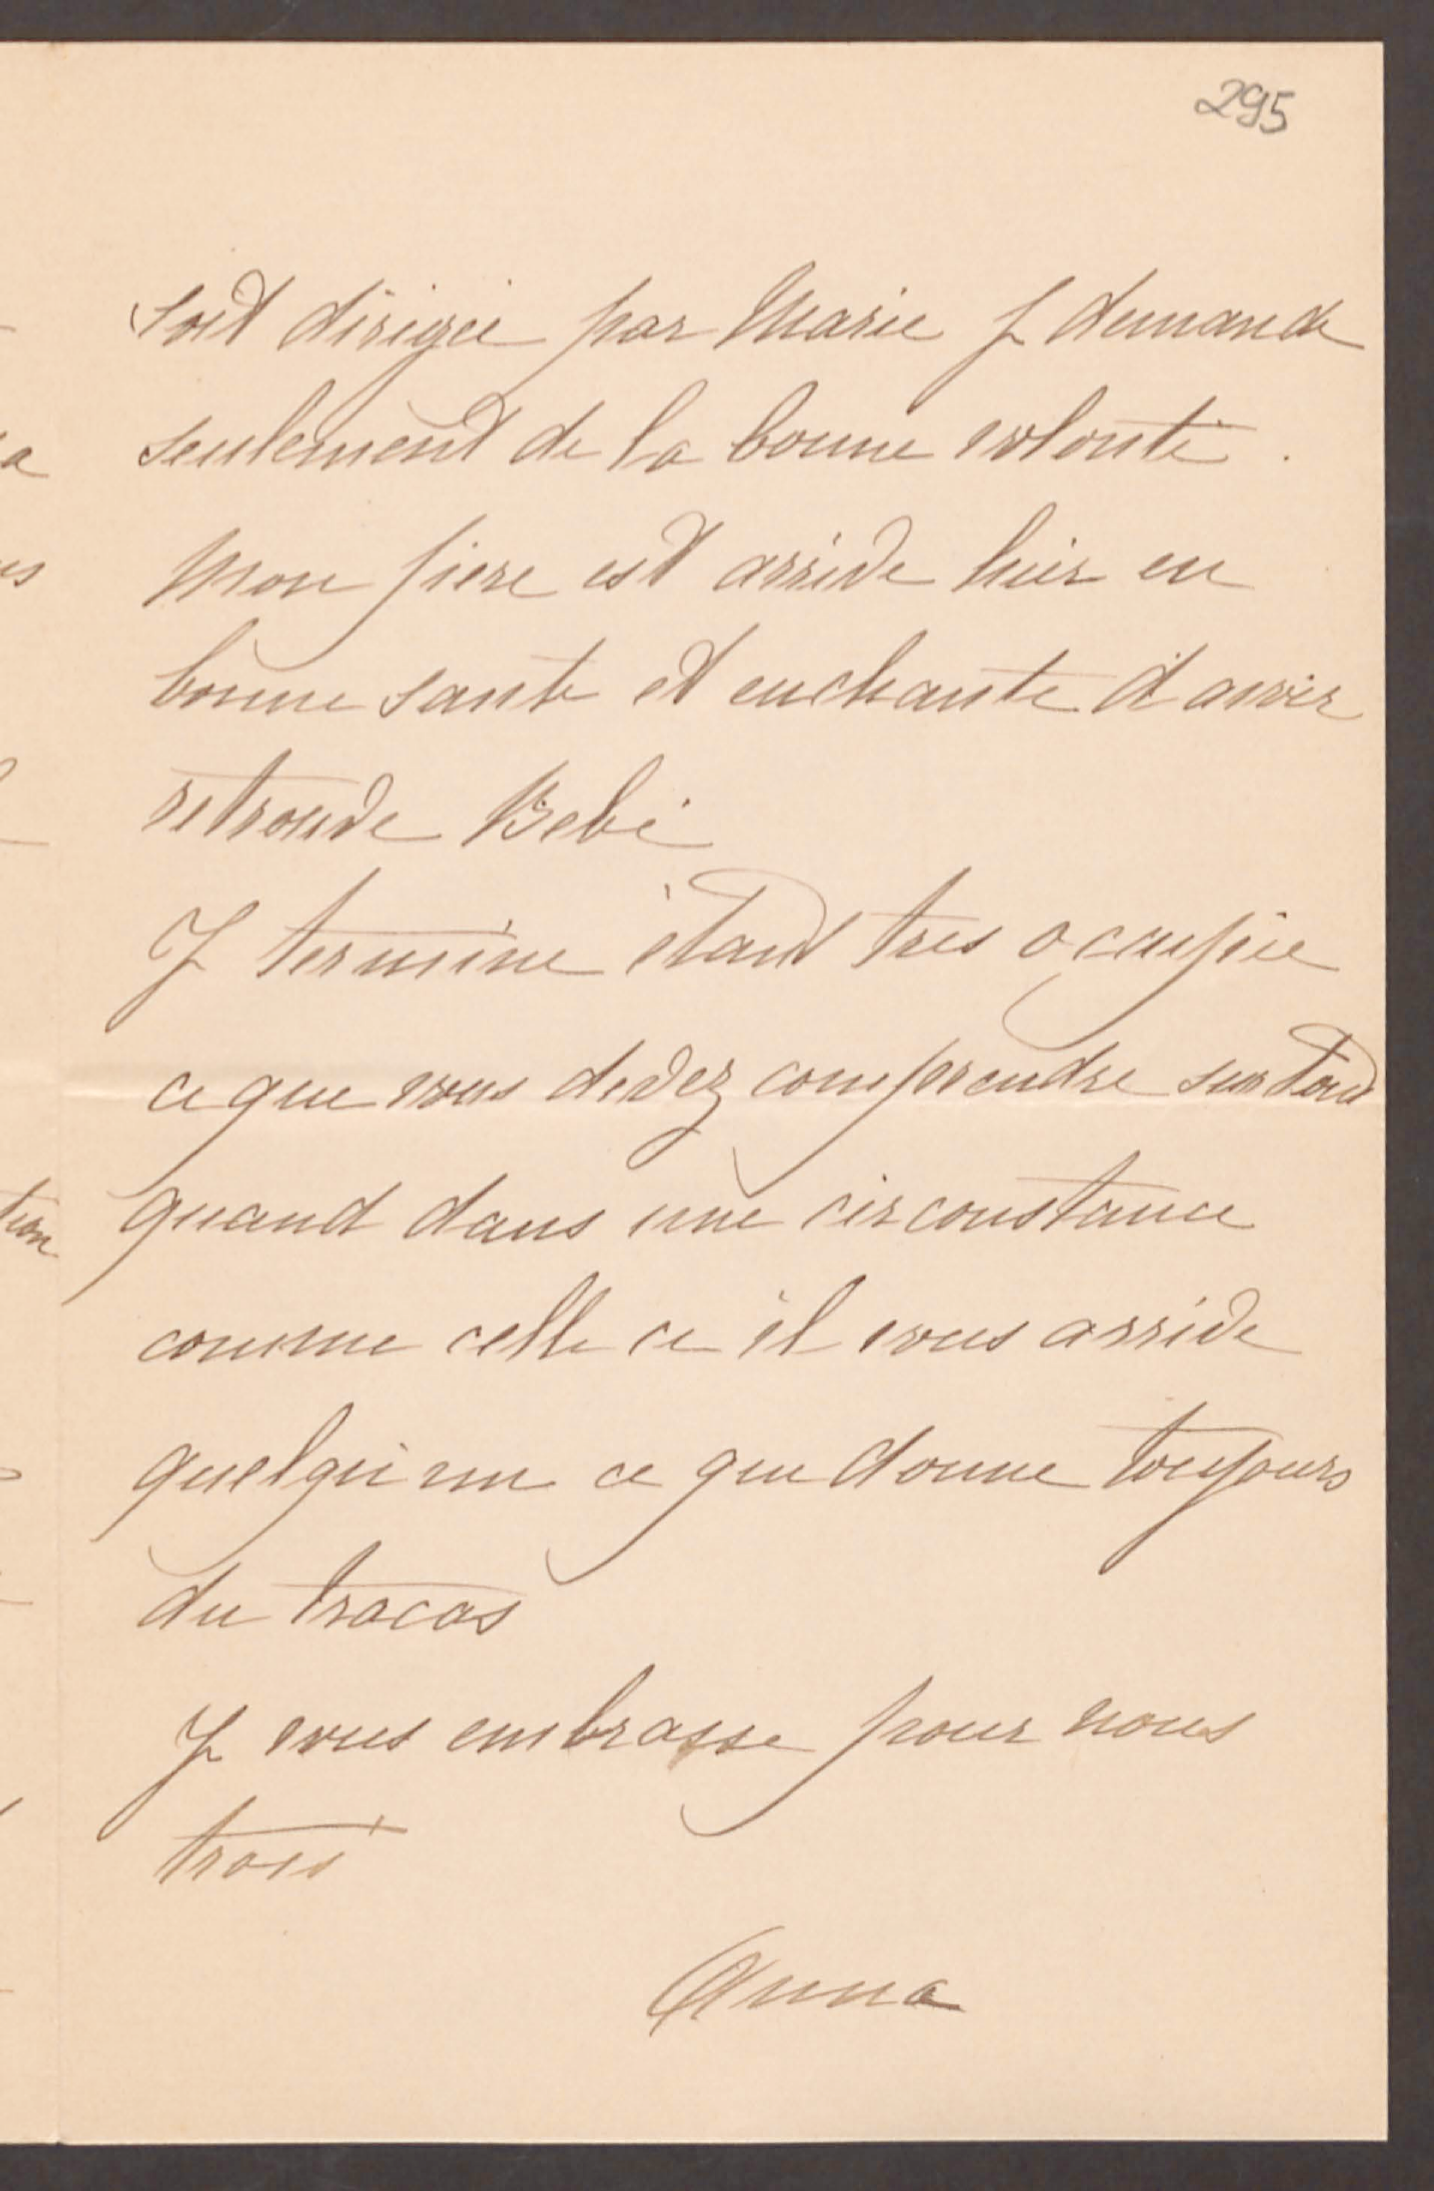 295
soit dirigée par Marie J demande
seulement de la bonne volonté.
Mon pere est arrivé hier en
bonne santé et enchante d'avoir
retrouvé Bebé
J termine étant tres ocupée
ce que vous devez comprendre surtout
quand dans une circonstance
comme celle ce il vous arrive
quelqu'un ce que donne toujours
du tracas
J vous embrasse pour nous
trois
Anna